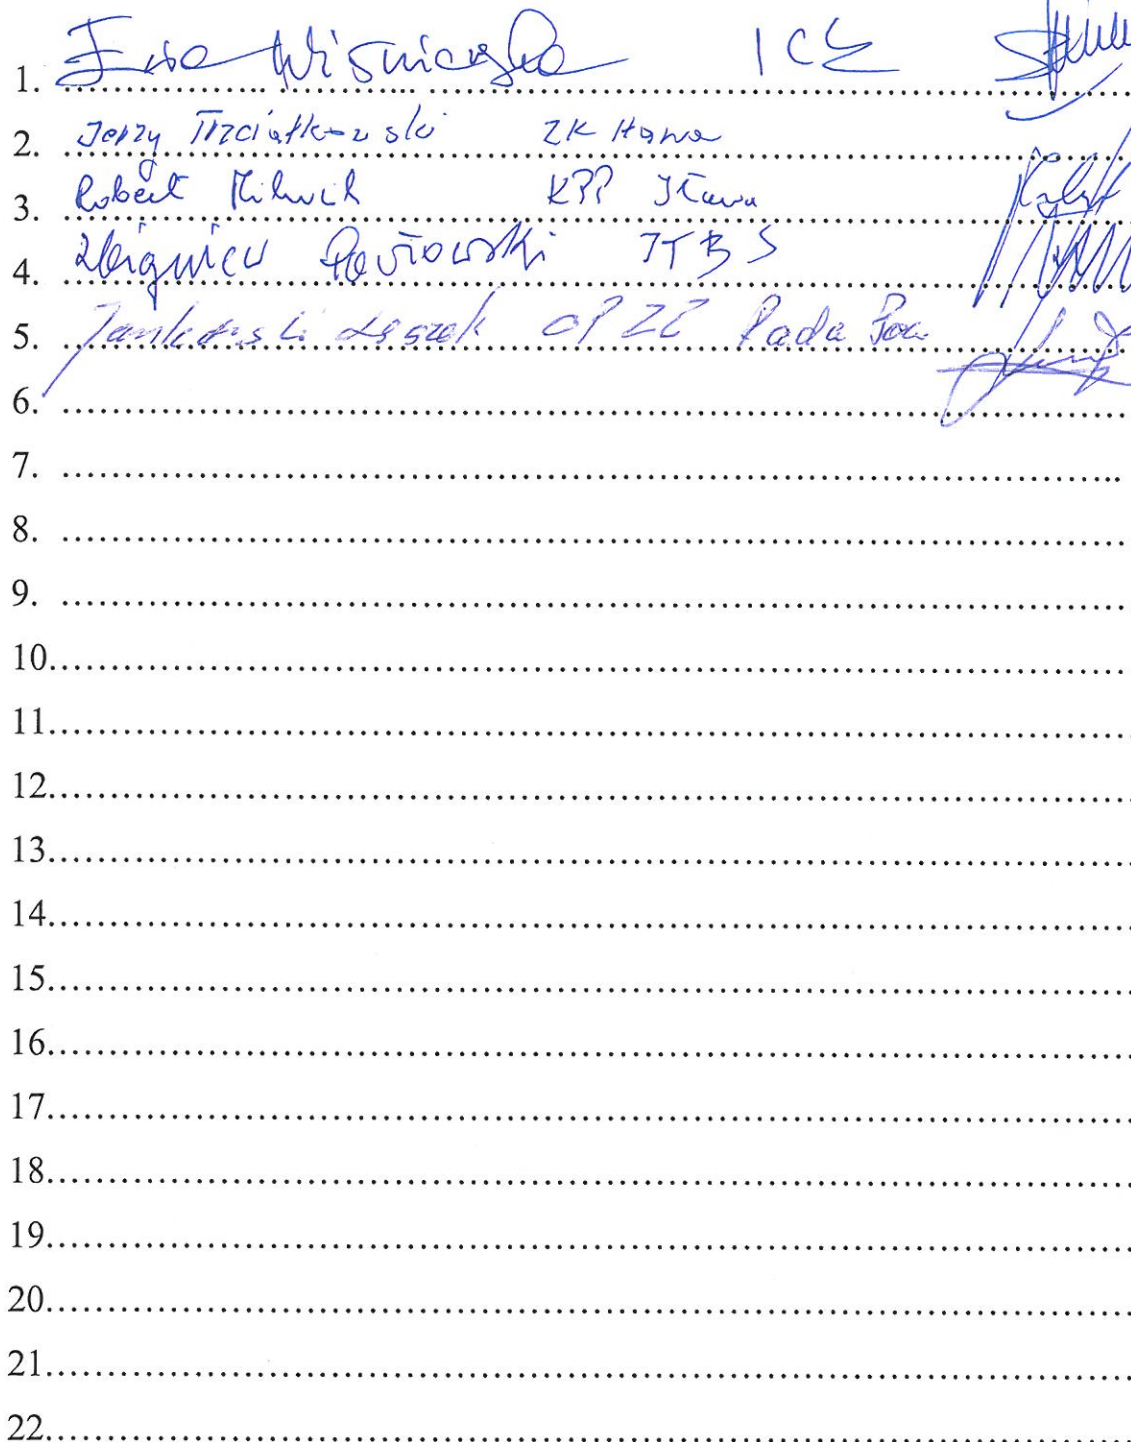 1. Ewa Wiśniewska ICE
2. Jerzy Trzciatkowski ZK Iława
3. Robert KPP Iława
4. Zbigniew Pawłowski ITBS
5. Jankowski Leszek OPZZ Rada Pow
6.
7.
8.
9.
10.
11.
12.
13.
14.
15.
16.
17.
18.
19.
20.
21.
22.